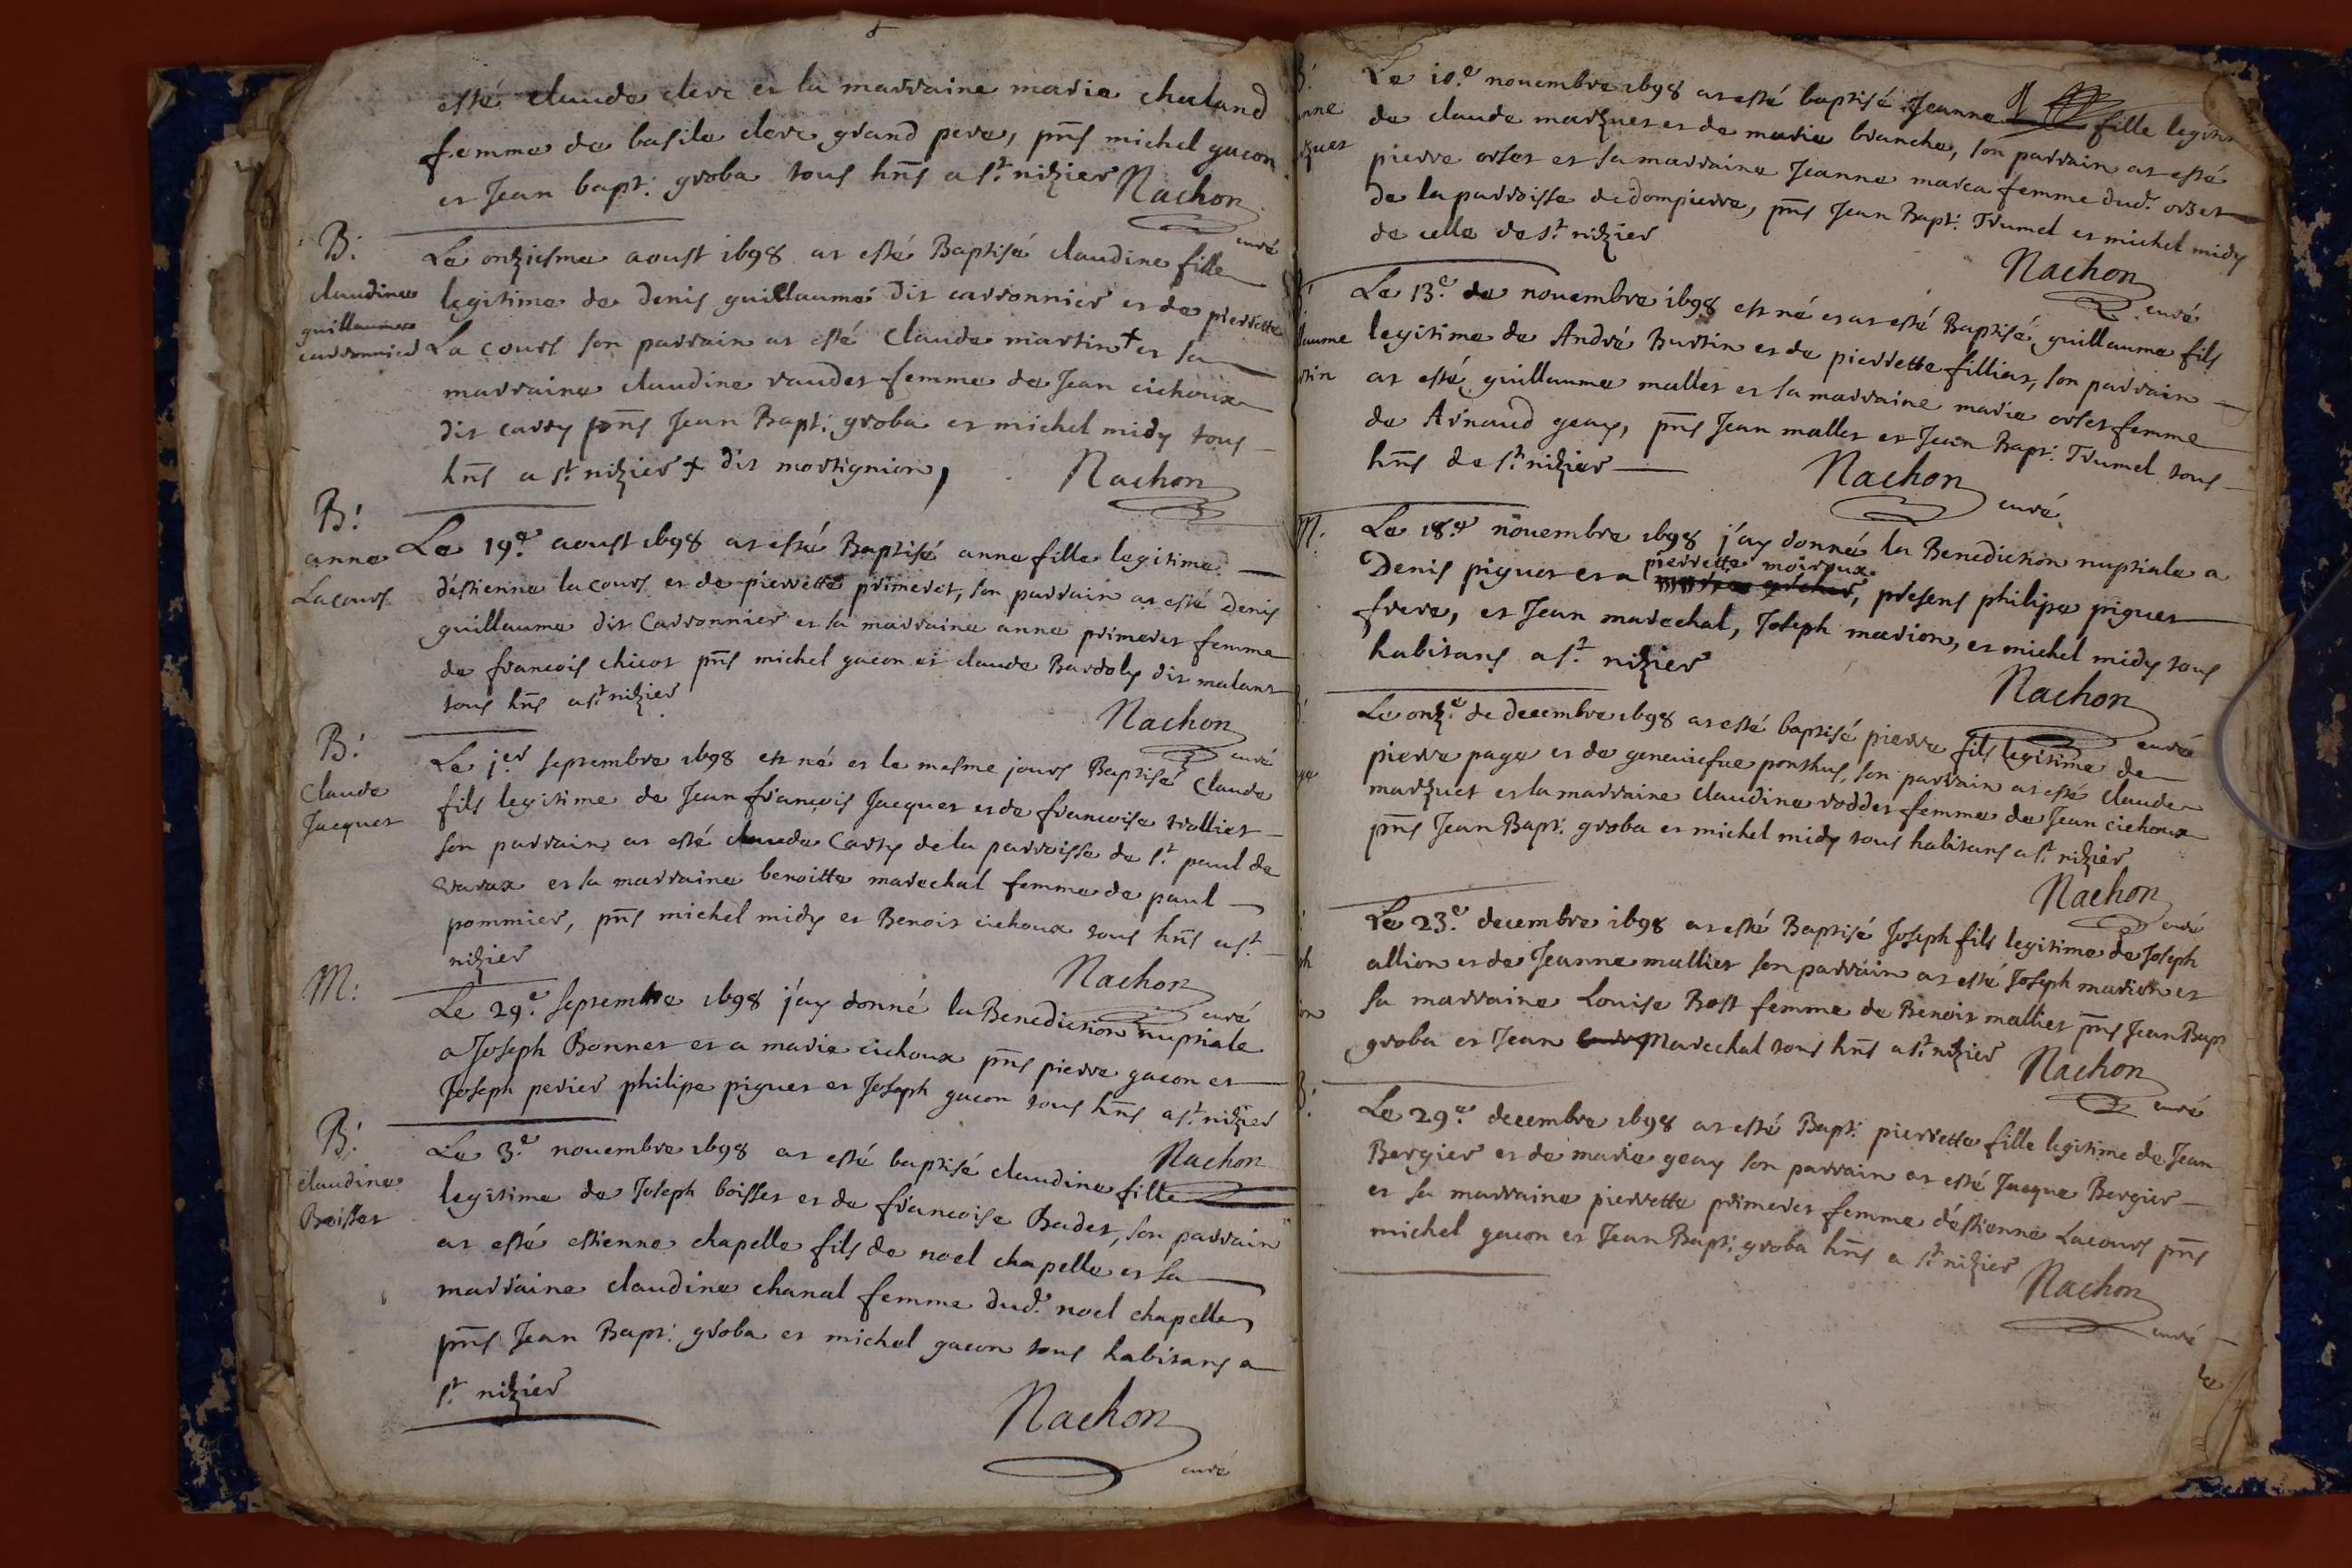 esté claude clerc et la marraine marie chaland
femme de basile clerc grand pere, pnts michel gacon
et Jean bapt: groba tous hnts a st nizier Nachon
curé
B:
claudine
guillaume
carronnier
Le onziesme aoust 1698 at esté Baptisé claudine fille
legitime de Denis guillaume dit carronnier et de pierrette
La cours son parrain at esté Claude martin + et sa
marraine claudine raudet femme de Jean cichoux
dit carry pnts Jean Bapt: groba et michel midy tous
hnts a st nizier + dit mortignion, Nachon
B:
anne
Lacours
Le 19e aoust 1698 at esté Baptisé anne fille legitime
d'estienne lacours et de pierrette primeret, son parrain at esté Denis
guillaume dit Carronnier et la marraine anne primeret femme
de francois chicot pnts michel gacon et claude Bardoly dit malant
tous hnts a st nizier Nachon
curé
B:
Claude
Jacquet
Le jer septembre 1698 est né et le mesme jours Baptisé Claude
fils legitime de Jean françois Jacquet et de francoise trolliet
son parrain at esté claude Carry de la parroisse de st paul de
varax et sa marraine benoitte marechal femme de paul
pommier, pnts michel midy et Benoit cichoux tous hnts a st
nizier Nachon
curé
M:
Le 29e septembre 1698 j'ay donné la Benediction nuptiale
a Joseph Bonnet et a marie cichoux pnts pierre gacon et
Joseph perier philipe piguet et Joseph gacon tous hnts a st nizier
Nachon
B:
claudine
Boisset
Le 3e novembre 1698 at esté baptisé claudine fille
legitime de Joseph boisset et de francoise Badet, son parrain
at esté estienne chapelle fils de noel chapelle et sa
marraine claudine chanal femme dud. noel chapelle
pnts Jean Bapt: groba et michel gacon tous habitans a
st nizier
Nachon
curé
B:
anne
rquet
Le 10e novembre 1698 at esté baptisé Jeanne fille legitime
de claude marquet et de marie branche, son parrain at esté
pierre orset et sa marraine Jeanne marca femme dud. orset
de la parroisse de dompierre, pnts Jean Bapt: Trumel et michel midy
de celle de st nizier
Nachon
curé
B:
llaume
rtin
Le 13e de novembre 1698 est né et at esté Baptisé guillaume fils
legitime de André Burtin et de pierrette filliat, son parrain
at esté guillaume mallet et sa marraine marie orset femme
de Arnaud geay, pnts Jean mallet et Jean Bapt: Trumel tous
hnts de st nizier Nachon
curé
M.
Le 18e novembre 1698 j'ay donné la Benediction nuptiale a
Denis piguet et a pierrette moiroux, presens philipe piguet
frere, et Jean marechal, Joseph marion, et michel midy tous
habitans a st nizier
Nachon
curé
B:
ge
Le onze de decembre 1698 at esté baptisé pierre fils legitime de
pierre page et de geneuiefue ponthus, son parrain at esté claude
marquet et la marraine claudine roddet femme de Jean cichoux
pnts Jean Bapt: groba et michel midy tous habitans a st nizier
Nachon
curé
ph
on
Le 23e decembre 1698 at esté Baptisé Joseph fils legitime de Joseph
allion et de Jeanne malliet son parrain at esté Joseph marion et
sa marraine Louise Bost femme de Benoit malliet pnts Jean Bapt
groba et Jean Marechal tous hnts a st nizier Nachon
curé
B:
Le 29e decembre 1698 at esté Bapt: pierrette fille legitime de Jean
Bergier et de marie geay son parrain at esté Jacque Bergier
et sa marraine pierrette primeret femme d'estienne Lacours pnts
michel gacon et Jean Bapt: groba hnts a st nizier
Nachon
curé
le